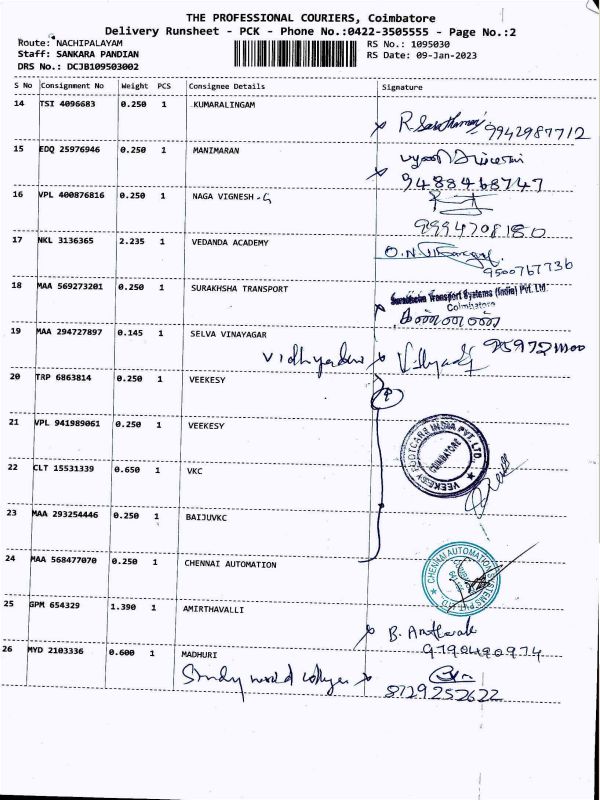 THE PROFESSIONAL COURIERS, Coimbatore
Delivery Runsheet - PCK - Phone No.:0422-3505555 - Page No.:2
Route: NACHIPALAYAM RS No.: 1095030
Staff: SANKARA PANDIAN RS Date: 09-Jan-2023
DRS No.: DCJB109503002
S No Consignment No Weight PCS Consignee Details Signature
14 TSI 4096683 0.250 1 KUMARALINGAM
9942987712
15 EDQ 25976946 0.250 1 MANIMARAN
9488468747
16 VPL 400876816 0.250 1 NAGA VIGNESH - G
9994708180
17 NKL 3136365 2.235 1 VEDANDA ACADEMY
9500767736
18 MAA 569273201 0.250 1 SURAKHSHA TRANSPORT
Surakhsha Transport Systems (India) Pvt. Ltd.
Coimbatore
19 MAA 294727897 0.145 1 SELVA VINAYAGAR
20 TRP 6863814 0.250 1 VEEKESY
21 VPL 941989061 0.250 1 VEEKESY
VEEKESY FOOTCARE INDIA PVT. LTD.
COIMBATORE
22 CLT 15531339 0.650 1 VKC
23 MAA 293254446 0.250 1 BAIJUVKC
24 MAA 568477070 0.250 1 CHENNAI AUTOMATION
CHENNAI AUTOMATION SYSTEMS PVT LTD
25 GPM 654329 1.390 1 AMIRTHAVALLI
B.
9790490974
26 MYD 2103336 0.600 1 MADHURI
Study world college
8729252622